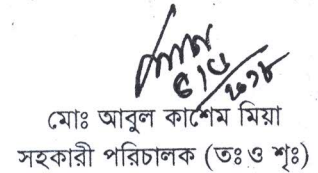 মোঃ আবুল কাশেম মিয়া
সহকারী পরিচালক (তঃ ও শৃঃ)